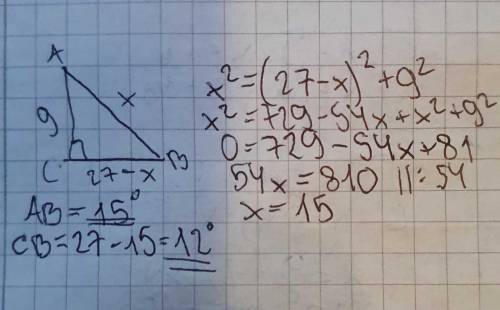 A
9
x
C
27-x
B
AB=15°
CB=27-15=12°
x²=(27-x)²+9²
x²=729-54x+x²+9²
0=729-54x+81
54x=810 ||:54
x=15